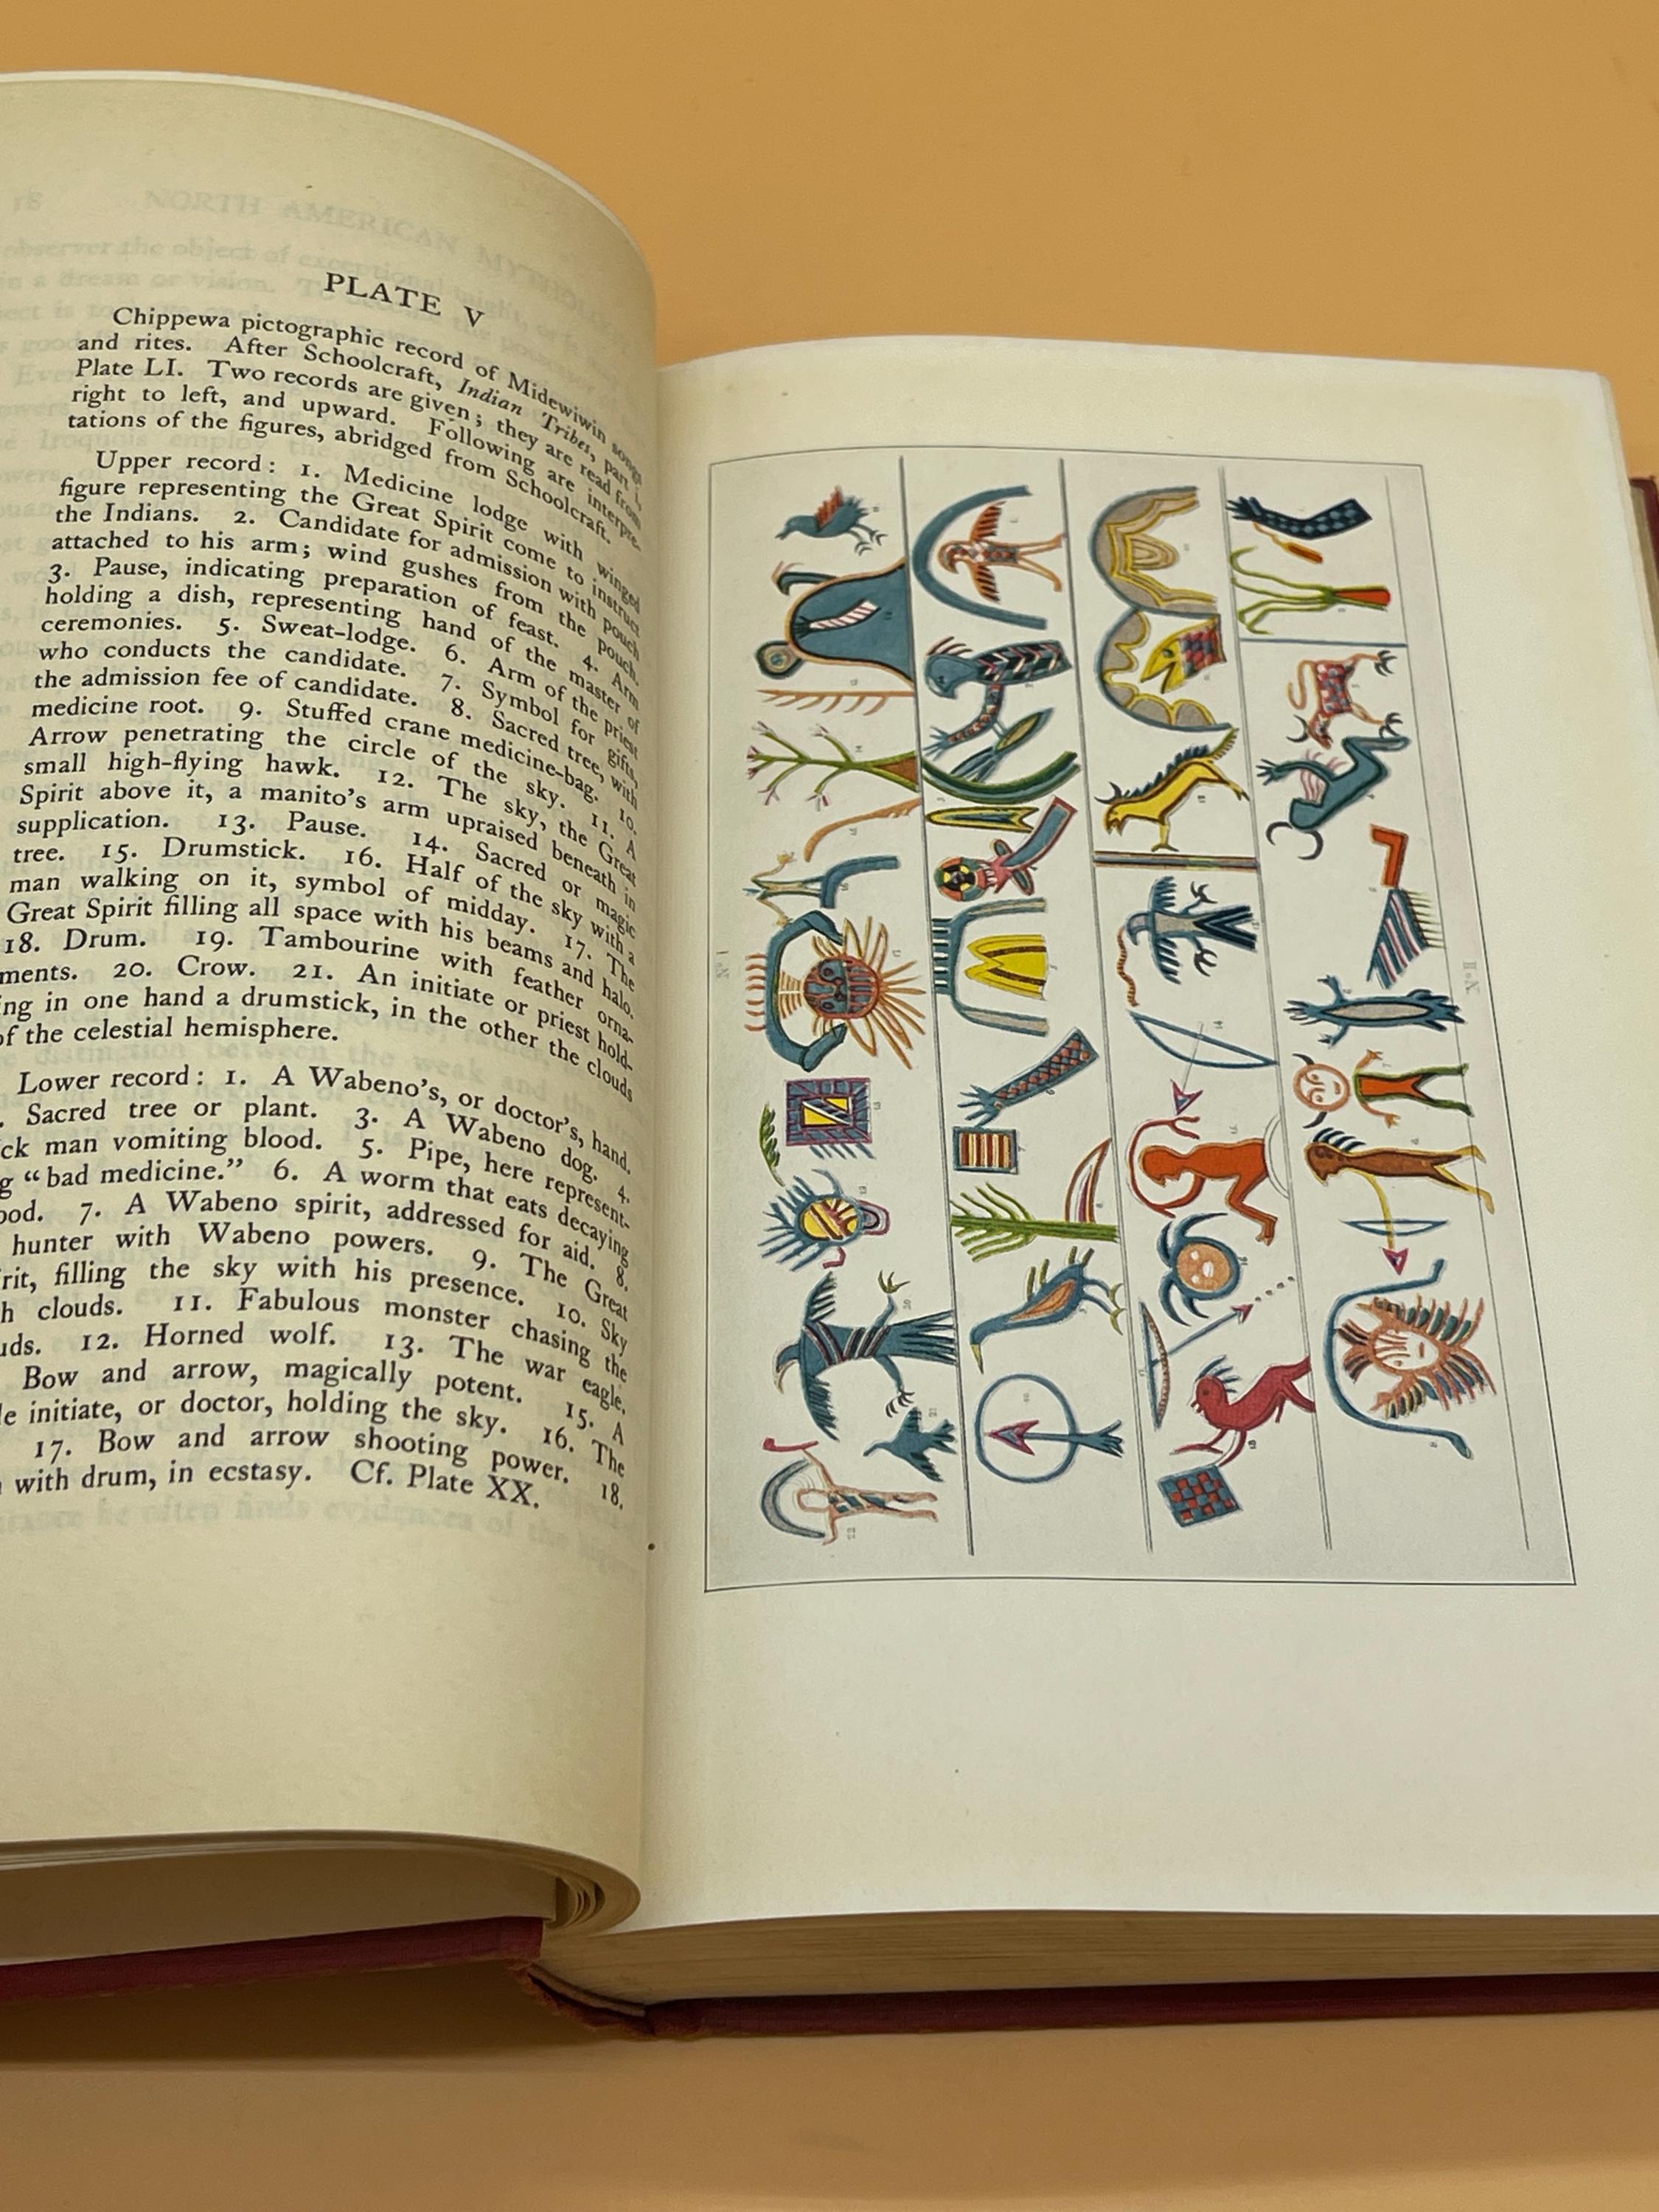 PLATE V
Chippewa pictographic record of Midewiwin songs
and rites. After Schoolcraft, Indian Tribes, part i,
Plate LI. Two records are given; they are read from
right to left, and upward. Following are interpre-
tations of the figures, abridged from Schoolcraft.
Upper record: 1. Medicine lodge with winged
figure representing the Great Spirit come to instruct
the Indians. 2. Candidate for admission with pouch
attached to his arm; wind gushes from the pouch.
3. Pause, indicating preparation of feast. 4. Arm
holding a dish, representing hand of the master of
ceremonies. 5. Sweat-lodge. 6. Arm of the priest
who conducts the candidate. 7. Symbol for gifts,
the admission fee of candidate. 8. Sacred tree, with
medicine root. 9. Stuffed crane medicine-bag. 10.
Arrow penetrating the circle of the sky. 11. A
small high-flying hawk. 12. The sky, the Great
Spirit above it, a manito's arm upraised beneath in
supplication. 13. Pause. 14. Sacred or magic
tree. 15. Drumstick. 16. Half of the sky with a
man walking on it, symbol of midday. 17. The
Great Spirit filling all space with his beams and halo.
18. Drum. 19. Tambourine with feather orna-
ments. 20. Crow. 21. An initiate or priest hold-
ing in one hand a drumstick, in the other the clouds
of the celestial hemisphere.
Lower record: 1. A Wabeno's, or doctor's, hand.
Sacred tree or plant. 3. A Wabeno dog. 4.
ck man vomiting blood. 5. Pipe, here represent-
g "bad medicine." 6. A worm that eats decaying
ood. 7. A Wabeno spirit, addressed for aid. 8.
hunter with Wabeno powers. 9. The Great
rit, filling the sky with his presence. 10. Sky
h clouds. 11. Fabulous monster chasing the
uds. 12. Horned wolf. 13. The war eagle.
Bow and arrow, magically potent. 15. A
le initiate, or doctor, holding the sky. 16. The
17. Bow and arrow shooting power. 18.
with drum, in ecstasy. Cf. Plate XX.
18 NORTH AMERICAN